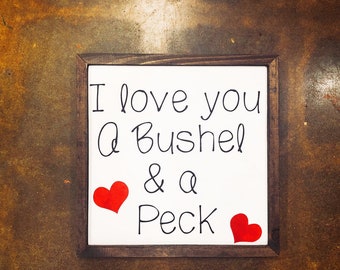 I love you
A Bushel
& a
Peck